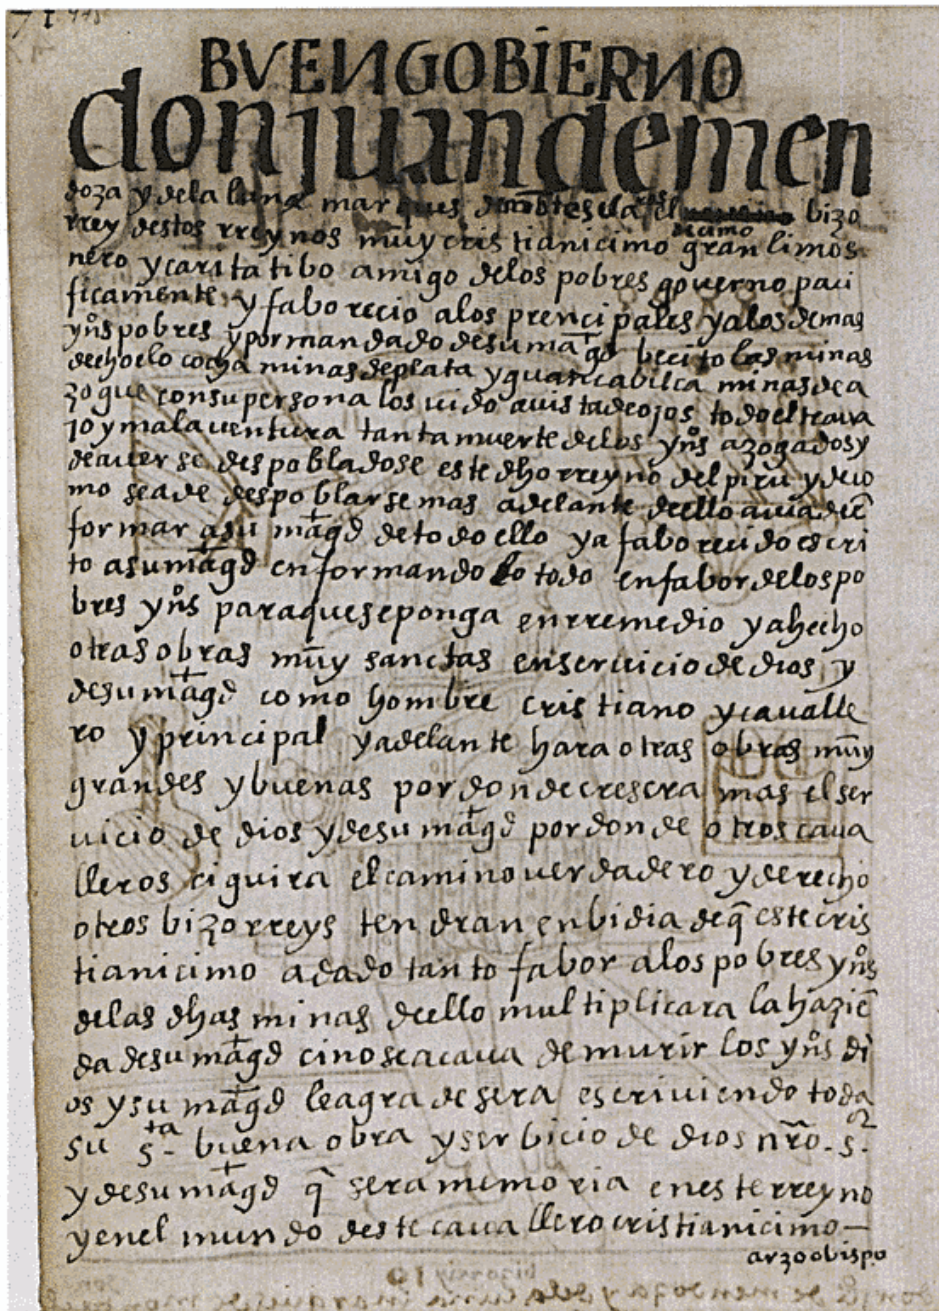 71
BVEN GOBIERNO
don juan de men
doza y de la luna marques de montesclaros el bizo
decimo
rrey destos rreynos muy cristianicimo gran limos
nero y caritatibo amigo de los pobres governo paci
ficamente y faborecio a los prencipales y a los demas
yns pobres y por mandado de su magd becito las minas
de choclo cocha minas de plata y guancabilca minas de a
zogue con su persona los vido a vista de ojos todo el trava
jo y mala ventura tanta muerte de los yns azogados y
de averse despobladose este dho rreyno del piru y de co
mo se a de despoblarse mas adelante dello avia de en
formar a su magd de todo ello y a faborecido escri
to a su magd enformandolo todo en fabor de los po
bres yns para que se ponga en rremedio y a hecho
otras obras muy sanctas en servicio de dios y
de su magd como hombre cristiano y cavalle
ro y principal y adelante hara otras obras muy
grandes y buenas por donde cresera mas el ser
vicio de dios y de su magd por donde otros cava
lleros ciguira el camino verdadero y derecho
otros bizorreys tendran enbidia de q̃ este cris
tianicimo a dado tanto fabor a los pobres yns
de las dhas minas dello multiplicara la hazien
da de su magd cino se acava de murir los yns di
os y su magd le agradesera escriviendo toda
su sta buena obra y serbicio de dios nro sr
y de su magd q̃ sera memoria en este rreyno
y en el mundo deste cavallero cristianicimo—
arzoobispo